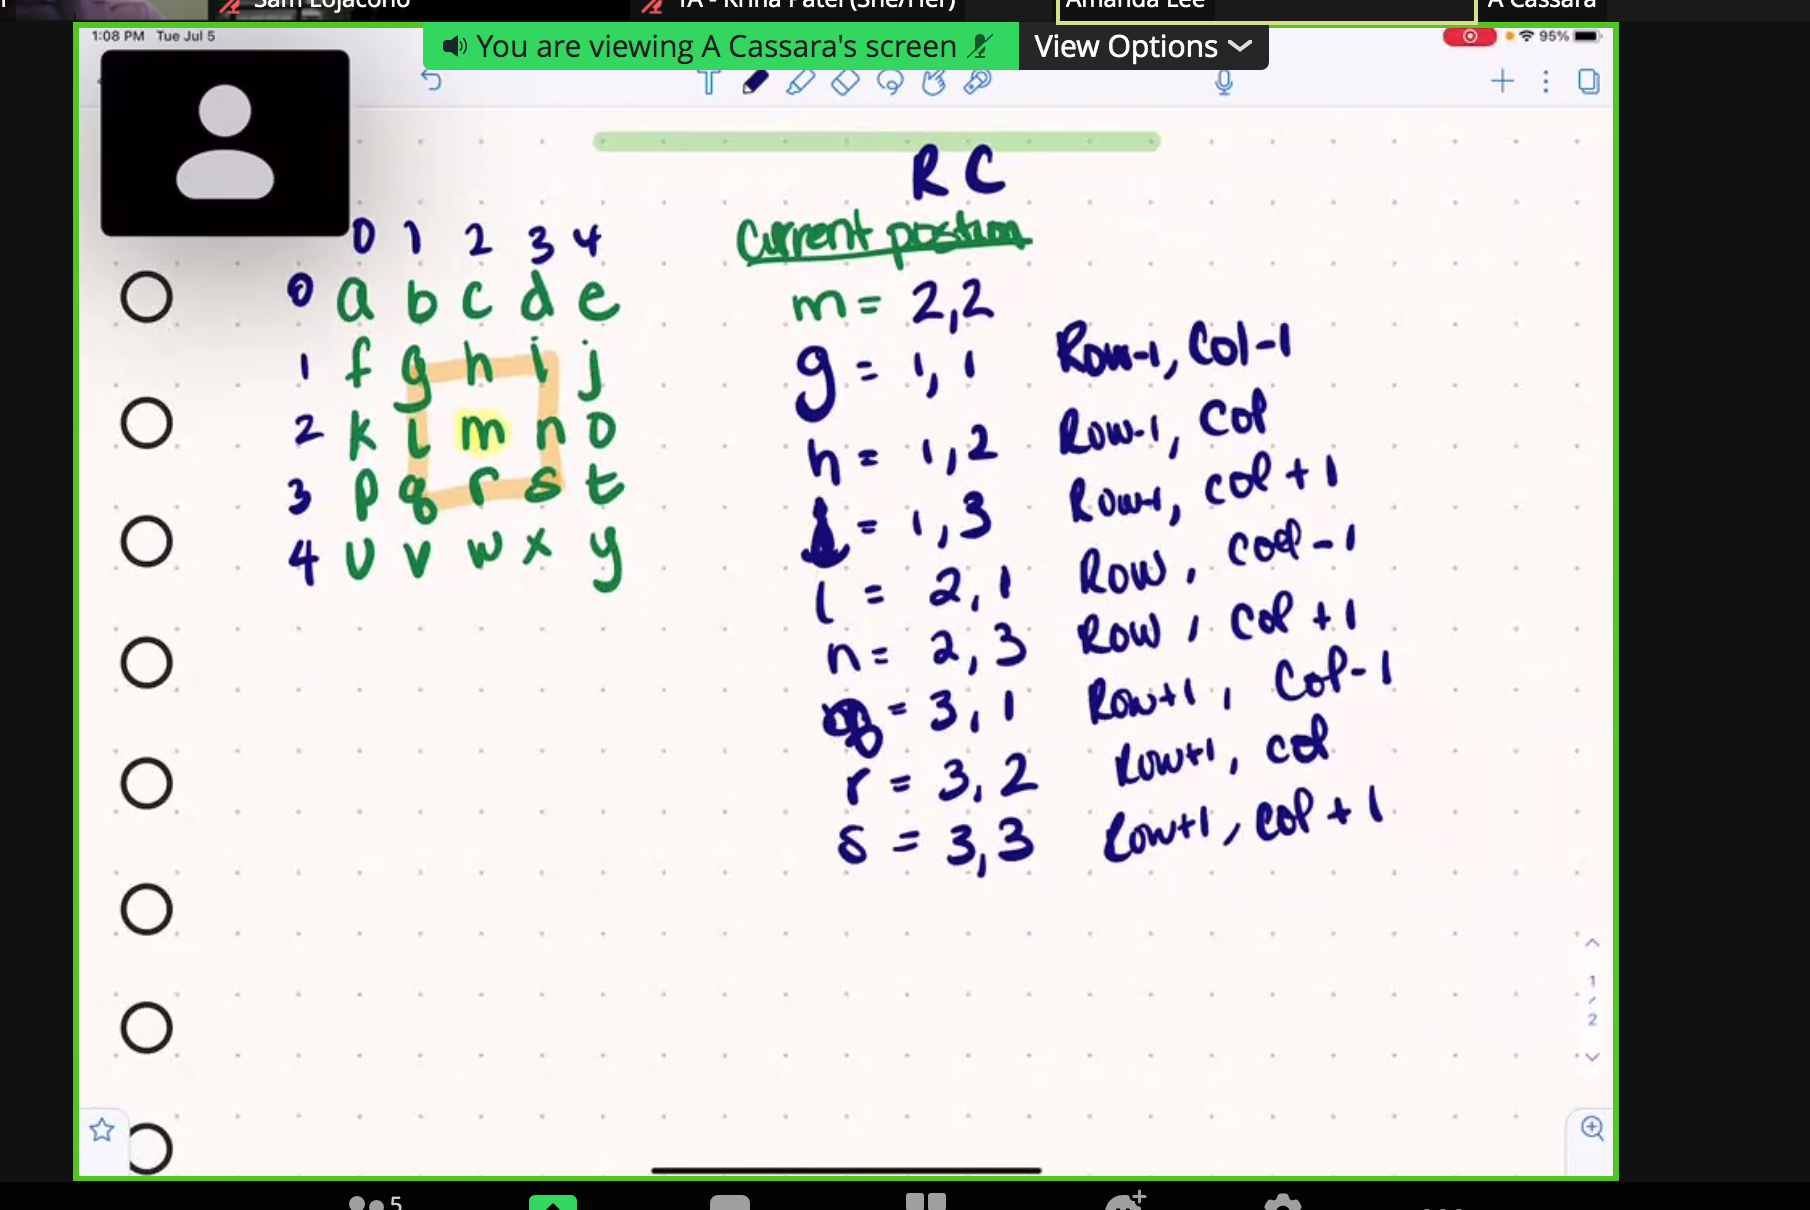 Sam Lojacono
TA - Krina Patel (She/Her)
Amanda Lee
A Cassara
1:08 PM Tue Jul 5
You are viewing A Cassara's screen
View Options
95%
R C
Current position
0 1 2 3 4
0 a b c d e
1 f g h i j
2 k l m n o
3 p q r s t
4 u v w x y
m = 2,2
g = 1,1 Row-1, Col-1
h = 1,2 Row-1, Col
i = 1,3 Row-1, Col+1
l = 2,1 Row, Col-1
n = 2,3 Row, Col+1
q = 3,1 Row+1, Col-1
r = 3,2 Row+1, Col
s = 3,3 Row+1, Col+1
1
2
5